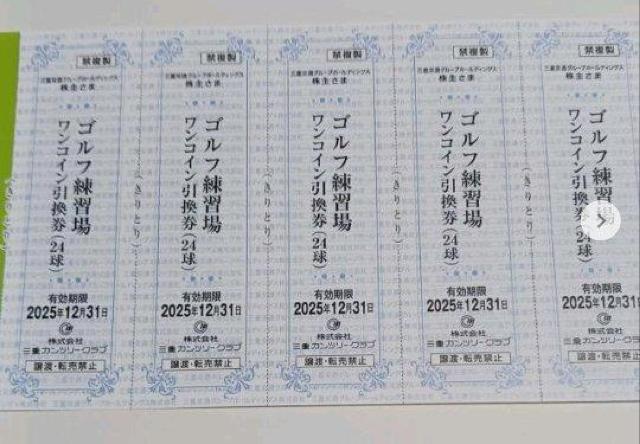 禁複製
三重交通グループホールディングス
株主さま
ゴルフ練習場
ワンコイン引換券(24球)
有効期限
2025年12月31日
株式会社
三重カンツリークラブ
譲渡・転売禁止
(きりとり)
禁複製
三重交通グループホールディングス
株主さま
ゴルフ練習場
ワンコイン引換券(24球)
有効期限
2025年12月31日
株式会社
三重カンツリークラブ
譲渡・転売禁止
(きりとり)
禁複製
三重交通グループホールディングス
株主さま
ゴルフ練習場
ワンコイン引換券(24球)
有効期限
2025年12月31日
株式会社
三重カンツリークラブ
譲渡・転売禁止
(きりとり)
禁複製
三重交通グループホールディングス
株主さま
ゴルフ練習場
ワンコイン引換券(24球)
有効期限
2025年12月31日
株式会社
三重カンツリークラブ
譲渡・転売禁止
(きりとり)
禁複製
三重交通グループホールディングス
株主さま
ゴルフ練習場
ワンコイン引換券(24球)
有効期限
2025年12月31日
株式会社
三重カンツリークラブ
譲渡・転売禁止